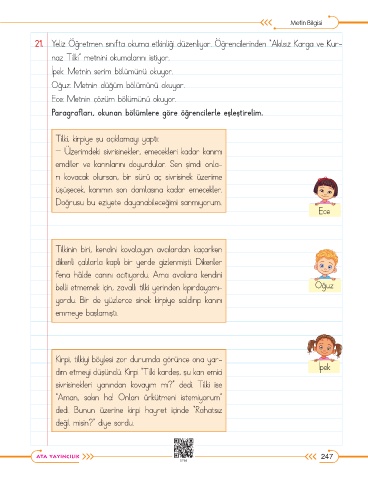 Metin Bilgisi
21. Yeliz Öğretmen sınıfta okuma etkinliği düzenliyor. Öğrencilerinden "Akılsız Karga ve Kur-
naz Tilki" metnini okumalarını istiyor.
İpek: Metnin serim bölümünü okuyor.
Oğuz: Metnin düğüm bölümünü okuyor.
Ece: Metnin çözüm bölümünü okuyor.
Paragrafları, okunan bölümlere göre öğrencilerle eşleştirelim.
Tilki, kirpiye şu açıklamayı yaptı:
– Üzerimdeki sivrisinekler, emecekleri kadar kanımı
emdiler ve karınlarını doyurdular. Sen şimdi onla-
rı kovacak olursan, bir sürü aç sivrisinek üzerime
üşüşecek, kanımın son damlasına kadar emecekler.
Doğrusu bu eziyete dayanabileceğimi sanmıyorum.
Ece
Tilkinin biri, kendini kovalayan avcılardan kaçarken
dikenli çalılarla kaplı bir yerde gizlenmişti. Dikenler
fena hâlde canını acıtıyordu. Ama avcılara kendini
belli etmemek için, zavallı tilki yerinden kıpırdayamı-
yordu. Bir de yüzlerce sinek kirpiye saldırıp kanını
emmeye başlamıştı.
Oğuz
Kirpi, tilkiyi böylesi zor durumda görünce ona yar-
dım etmeyi düşündü. Kirpi "Tilki kardeş, şu kan emici
sivrisinekleri yanından kovayım mı?" dedi. Tilki ise
"Aman, sakın ha! Onları ürkütmeni istemiyorum"
dedi. Bunun üzerine kirpi hayret içinde "Rahatsız
değil misin?" diye sordu.
İpek
ATA YAYINCILIK
247